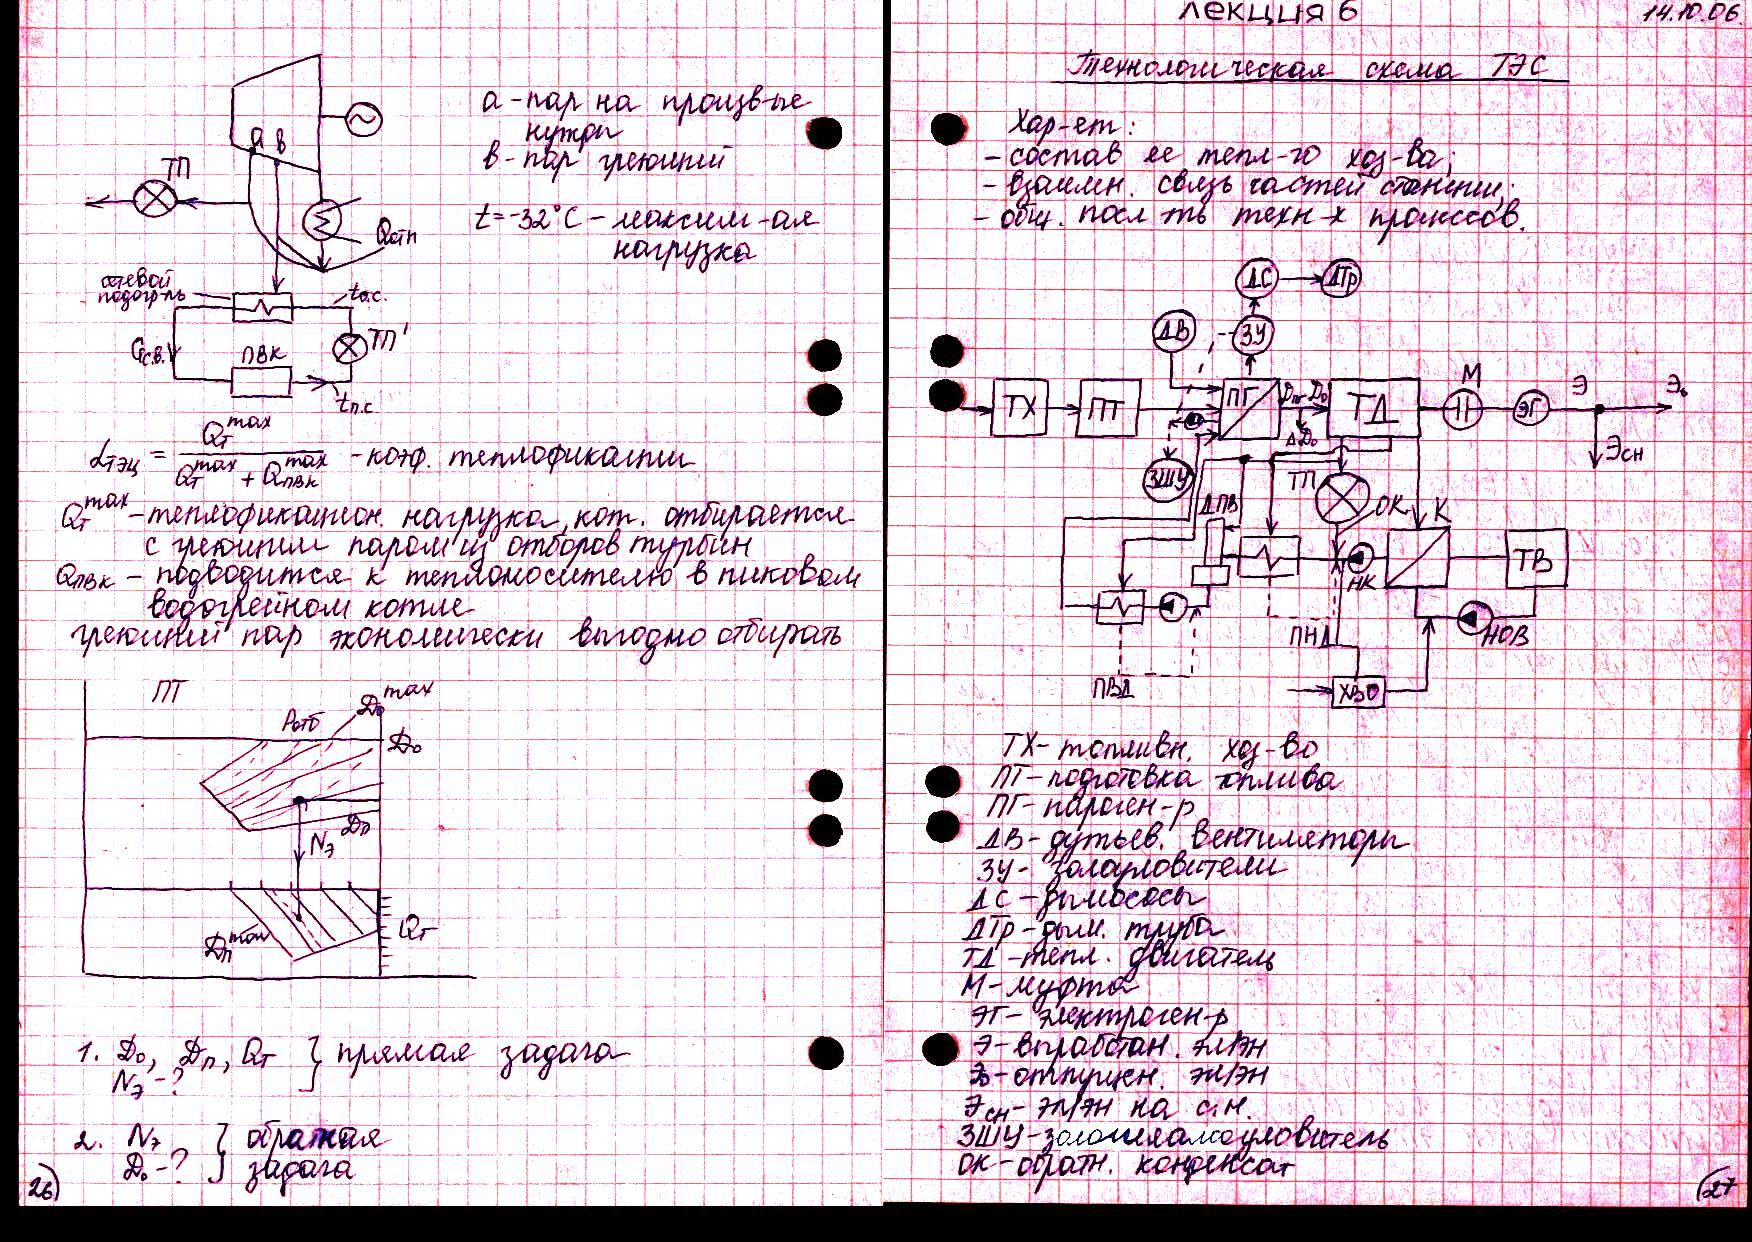 а - пар на произв-ые
нужды
в - пар греющий
t = -32°C - максим-ая
нагрузка
а в
ТП
Qстп
сетевой
подогр-ль
tо.с.
Gс.в.
ПВК
ТП'
tп.с
αТЭЦ = Qт^max / (Qт^max + Qпвк^max) - коэф. теплофикации
Qт^max - теплофикацион. нагрузка, кот. отбирается
с греющим паром из отборов турбин
Qпвк - подводится к теплоносителю в пиковом
водогрейном котле
греющий пар экономически выгодно отбирать
ПТ
Pотб
До^max
До
Дп
Nэ
Дп^max
Qт
1. До, Дп, Qт } прямая задача
Nэ - ?
2. Nэ } обратная
До - ? } задача
26)
лекция 6
14.10.06
Технологическая схема ТЭС
Хар-ет:
- состав ее тепл-го хоз-ва;
- взаимн. связь частей станции;
- общ. посл-ть техн-х процессов.
ДС ДТр
ДВ ЗУ
ТХ ПТ ПГ Дпг До ТД М ЭГ Э Эо
ΔДо
Эсн
ЗШУ
ТП
ДПВ
ОК К
НК
ТВ
ПНД
НОВ
ПВД
ХВО
ТХ - топливн. хоз-во
ПТ - подготовка топлива
ПГ - пароген-р
ДВ - дутьев. вентиляторы
ЗУ - золоуловители
ДС - дымососы
ДТр - дым. труба
ТД - тепл. двигатель
М - муфта
ЭГ - электроген-р
Э - выработан. эл/эн
Эо - отпущен. эл/эн
Эсн - эл/эн на с.н.
ЗШУ - золошлакоуловитель
ОК - обратн. конденсат
(27